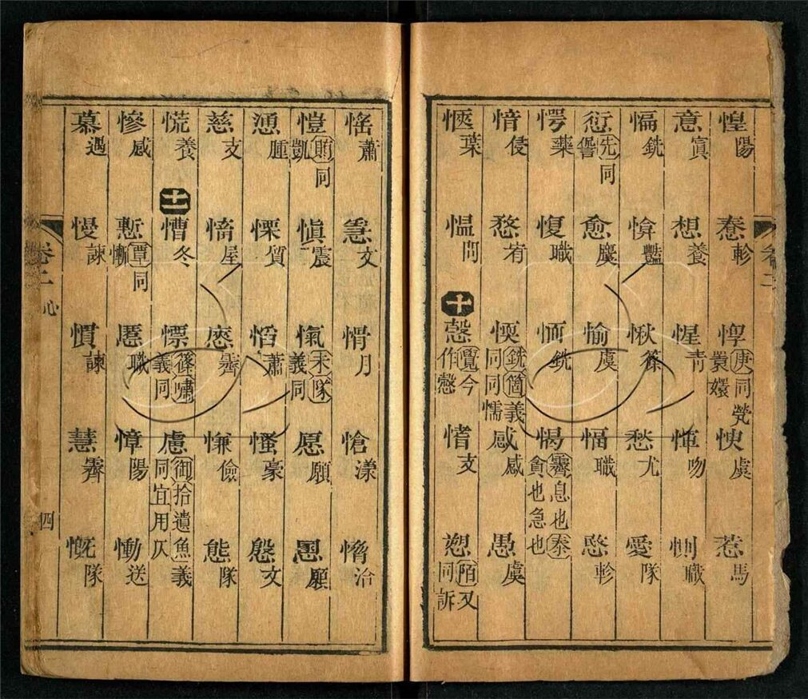 惶陽 惷軫 惸庚同煢睘嬛 㥚虞 惹馬
意寘 想養 惺青 惲吻 惻職
愊銑 愔豔 愀篠 愁尤 愛隊
愆先同諐 愈麌 愉虞 愊職 愍軫
愕藥 愎職 愐銑 愒霽息也泰貪也急也
愔侵 愗宥 愞銑箇義同同懦 感感 愚虞
愜葉 慍問 十 愨覺今作慤 愭支 愬陌又同訴
愮蕭 慇文 愲月 愴漾 愶洽
愷賄同凱 愼震 愾未隊義同 愿願 慁願
慂腫 慄質 慆蕭 慅豪 慇文
慈支 慉屋 慼霽 慊儉 態隊
慌養 十一 慒冬 慓篠嘯義同 慮御拾遺魚義同宜用仄
慘感 慙覃同慚 慝職 慞陽 慟送
慕遇 慢諫 慣諫 慧霽 慨隊
卷二 心 四
卷二